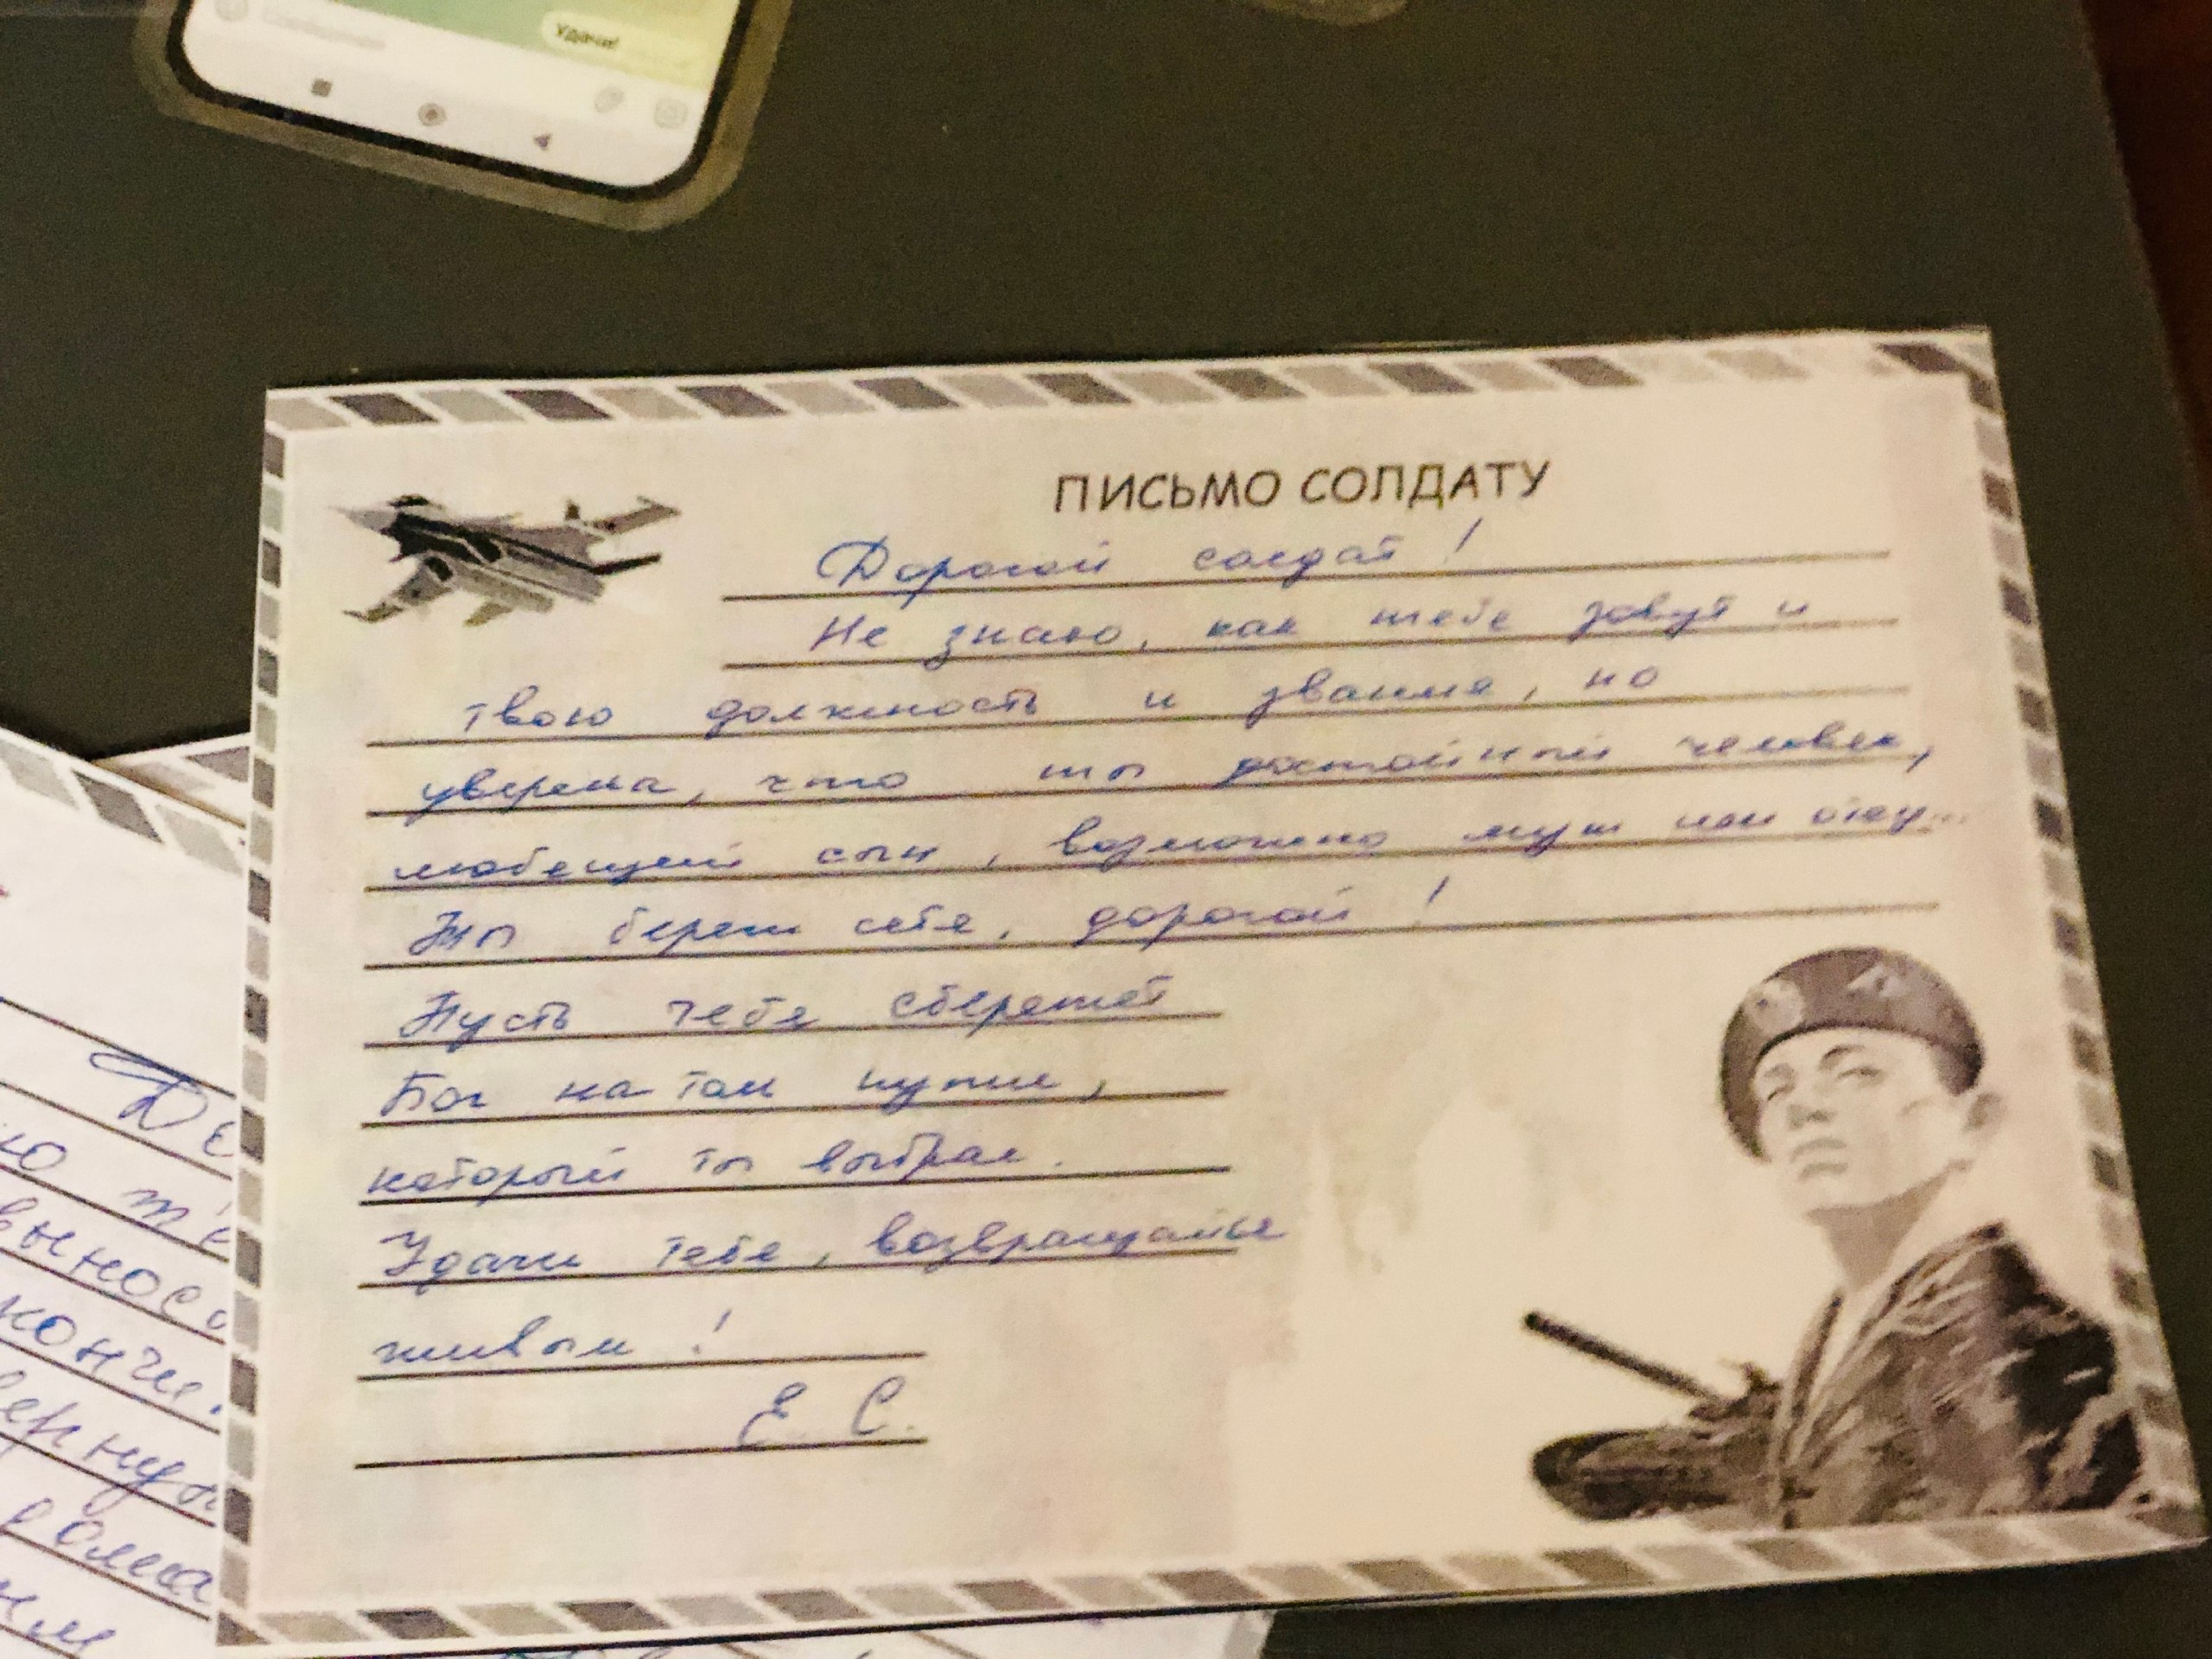 Удачи!
ПИСЬМО СОЛДАТУ
Дорогой солдат!
Не знаю, как тебе зовут и
твою должность и звания, но
уверена, что ты достойный человек,
любещий сын, возможно муж или отец...
Ты береги себя, дорогой!
Пусть тебя сбережет
Бог на том пути,
который ты выбрал.
Удачи тебе, возвращайся
живым!
Е. С.